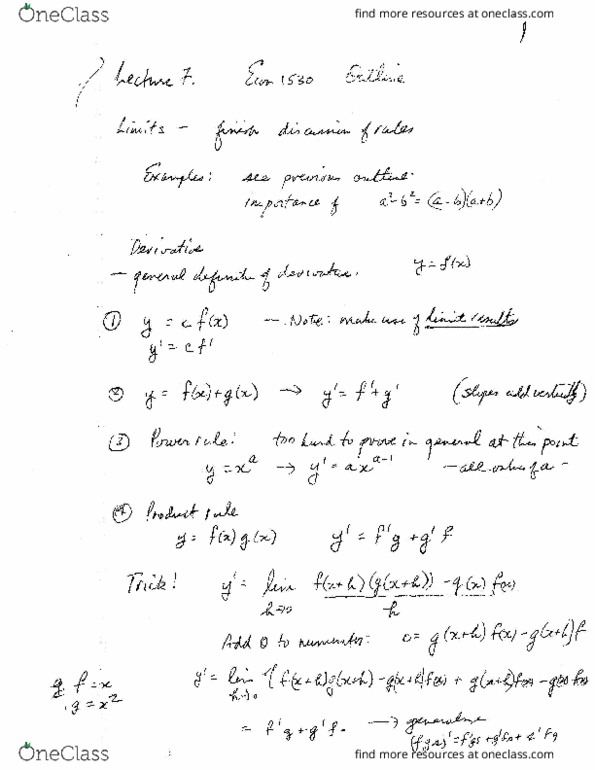 OneClass
find more resources at oneclass.com
1
Lecture 7. Econ 1530 Outline
Limits – finish discussion of rules
Examples: see previous outline.
importance of a²-b² = (a-b)(a+b)
Derivative
– general definite of derivative. y = f(x)
① y = c f(x) – Note: make use of limit results
y' = c f'
② y = f(x)+g(x) → y' = f'+g' (slopes add vertically)
③ Power rule: too hard to prove in general at this point
y = x^a → y' = a x^(a-1) – all values of a –
④ Product rule
y = f(x) g(x) y' = f'g + g'f
Trick! y' = lim h→0 f(x+h)(g(x+h)) - g(x) f(x) / h
Add 0 to numerator: 0 = g(x+h) f(x) - g(x+h) f
g. f = x y' = lim h→0 { f(x+h)g(x+h) - g(x+h)f(x) + g(x+h)f(x) - g(x) f(x)
g = x²
= f'g + g'f. → generalise
OneClass
find more resources at oneclass.com